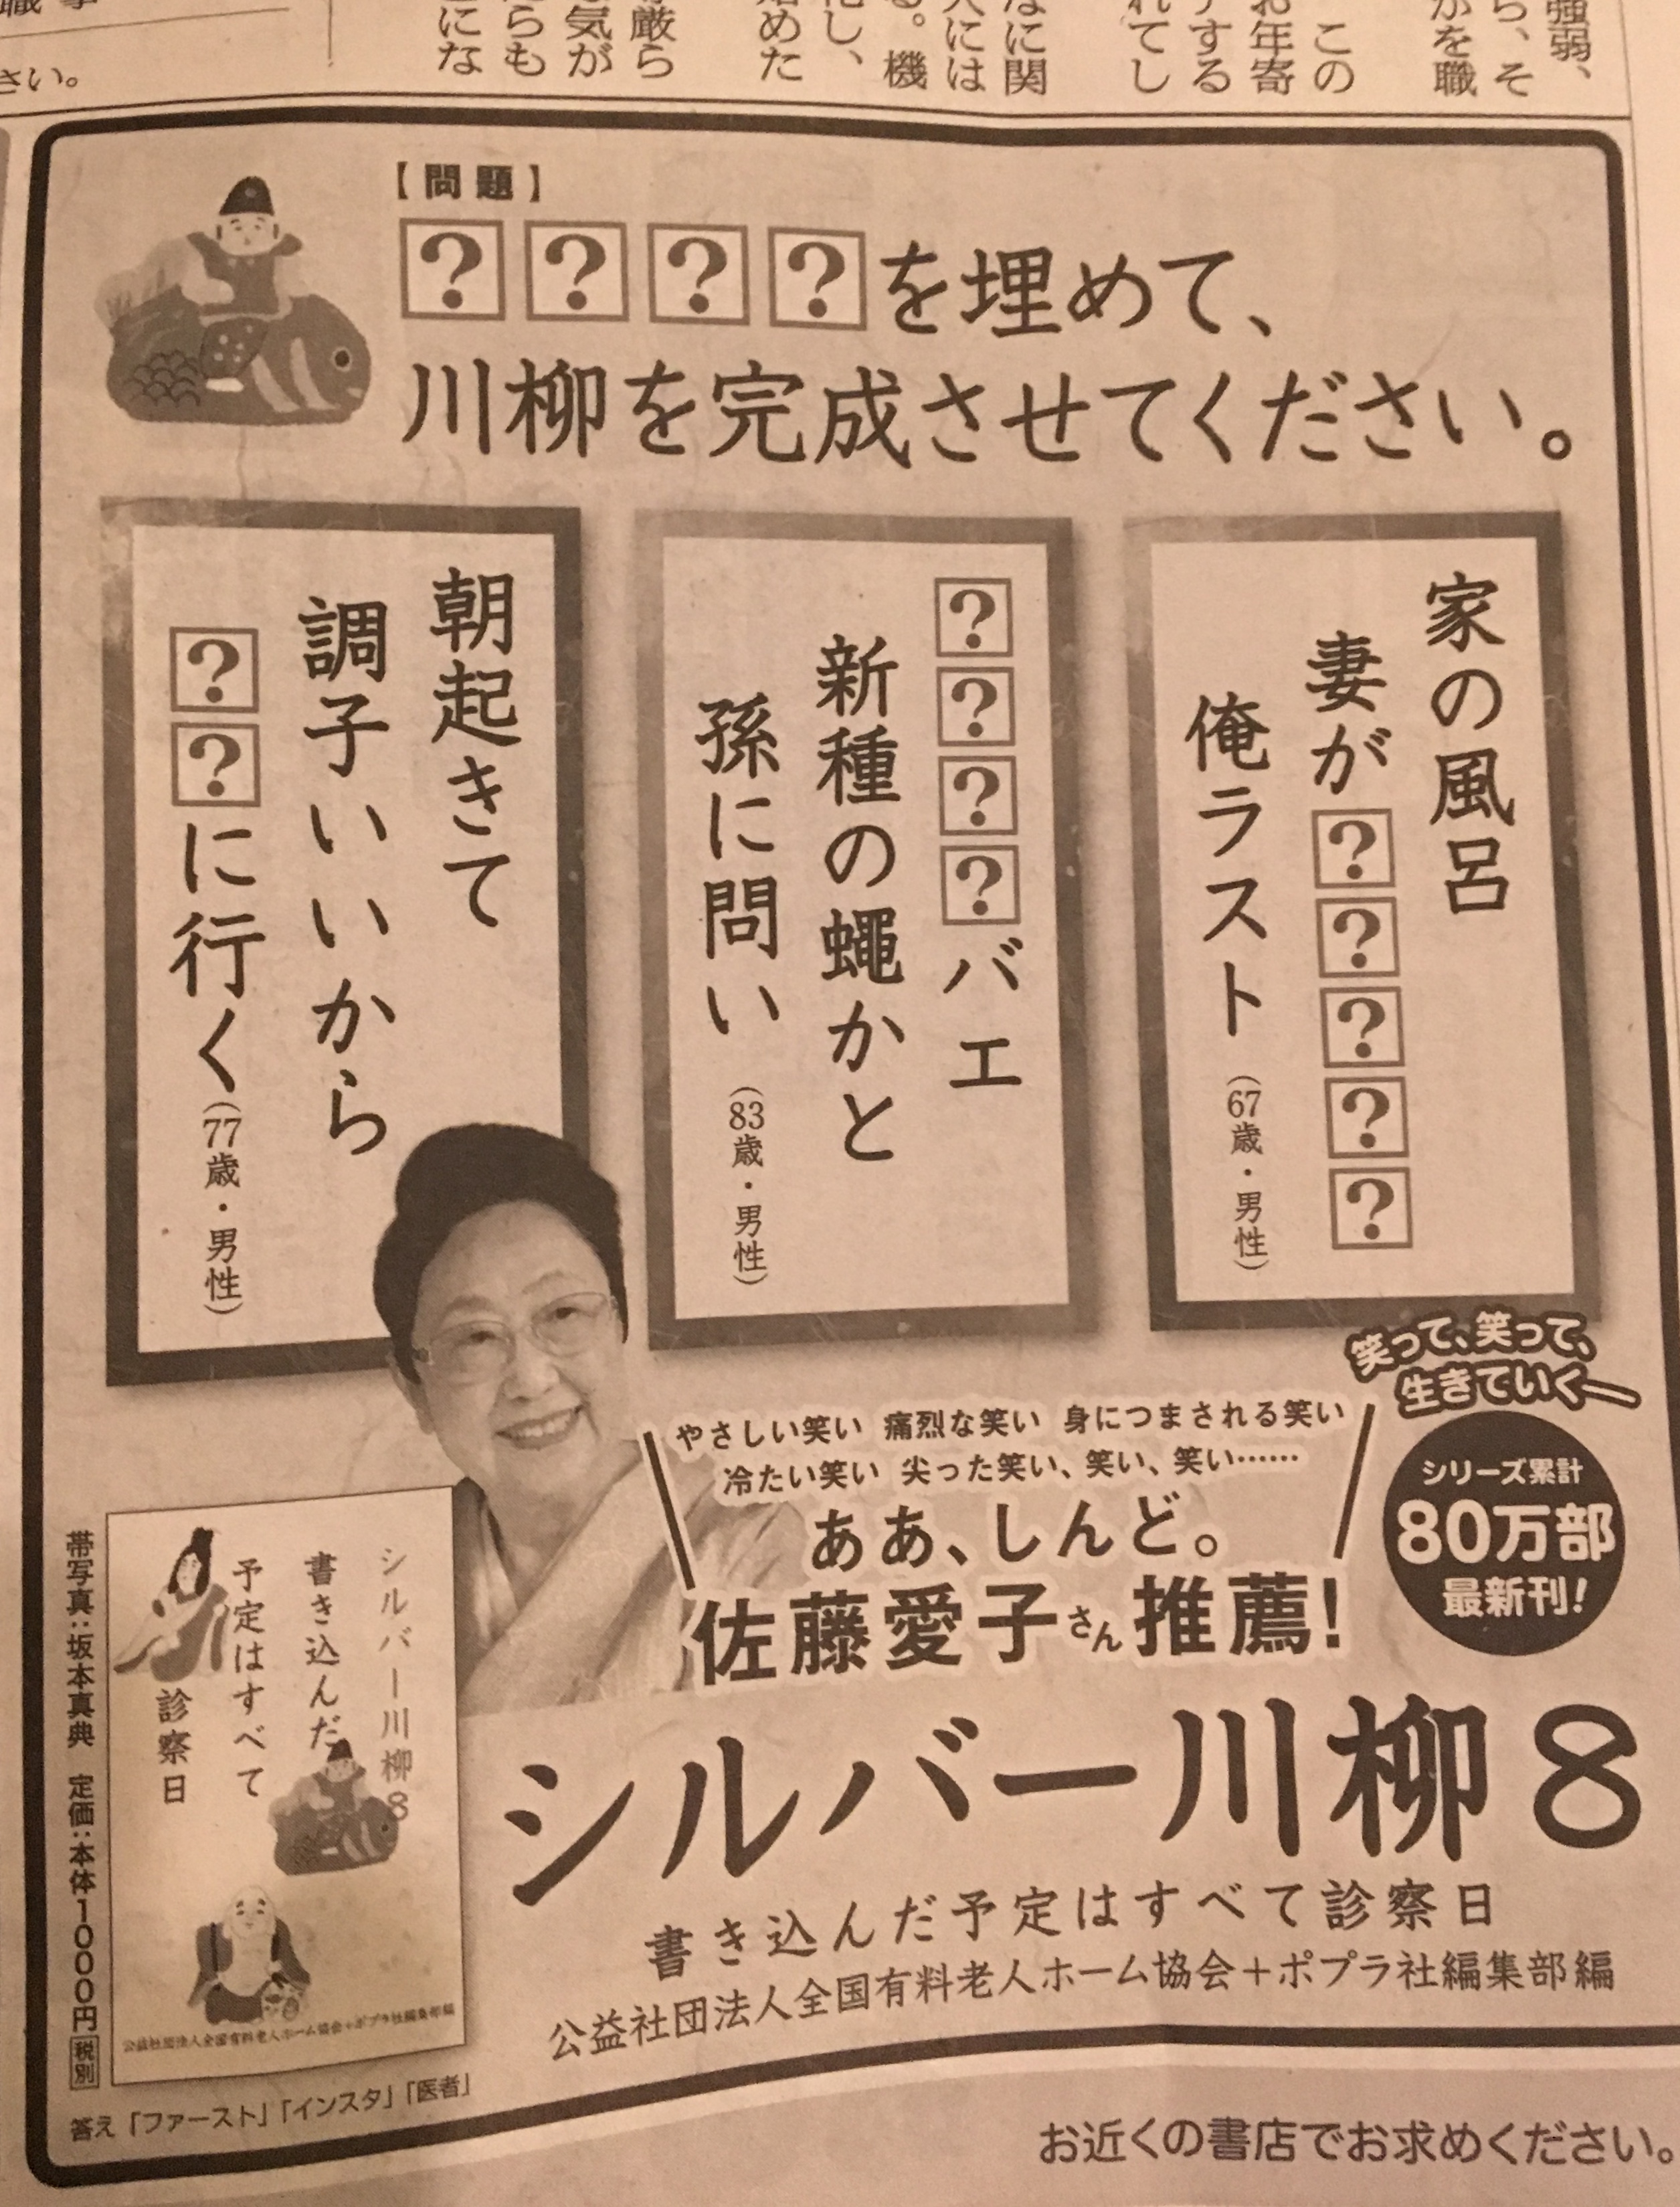 強弱、
ら、そ
かを職
この
お年寄
する
れてし
なに関
人には
る。機
化し、
始めた
厳ら
気が
らも
にな
さい。
【問題】
????を埋めて、
川柳を完成させてください。
家の風呂
妻が?????
俺ラスト
(67歳・男性)
????バエ
新種の蠅かと
孫に問い
(83歳・男性)
朝起きて
調子いいから
??に行く
(77歳・男性)
笑って、笑って、
生きていく―
シリーズ累計
80万部
最新刊!
やさしい笑い 痛烈な笑い 身につまされる笑い
冷たい笑い 尖った笑い、笑い、笑い……
ああ、しんど。
佐藤愛子さん推薦!
シルバー川柳8
書き込んだ予定はすべて診察日
公益社団法人全国有料老人ホーム協会+ポプラ社編集部編
シルバー川柳8
書き込んだ
予定はすべて
診察日
公益社団法人全国有料老人ホーム協会+ポプラ社編集部編
帯写真:坂本真典 定価:本体1000円 税別
答え「ファースト」「インスタ」「医者」
お近くの書店でお求めください。